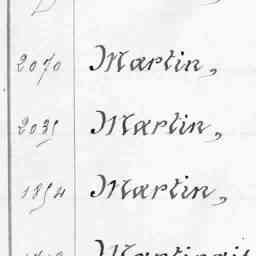 2070 Martin,
2035 Martin,
1854 Martin,